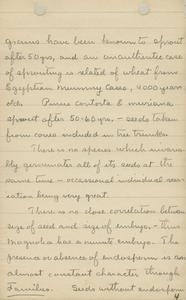 grains have been known to sprout
after 50 yrs, and an unauthentic case
of sprouting is related of wheat from
Egyptian Mummy Cases, 4000 years
old. Pinus contorta & muricana
sprout after 50-60 yrs. - seeds taken
from cones included in tree trunks.
There is no species which invaria-
bly germinates all of its seeds at the
same time - occasional individual var-
iation being very great.
There is no close correlation between
size of seed and size of embryo. - thus
Magnolia has a minute embryo. The
presence or absence of endosperm is an
almost constant character through
Families. Seeds without endosperm
4